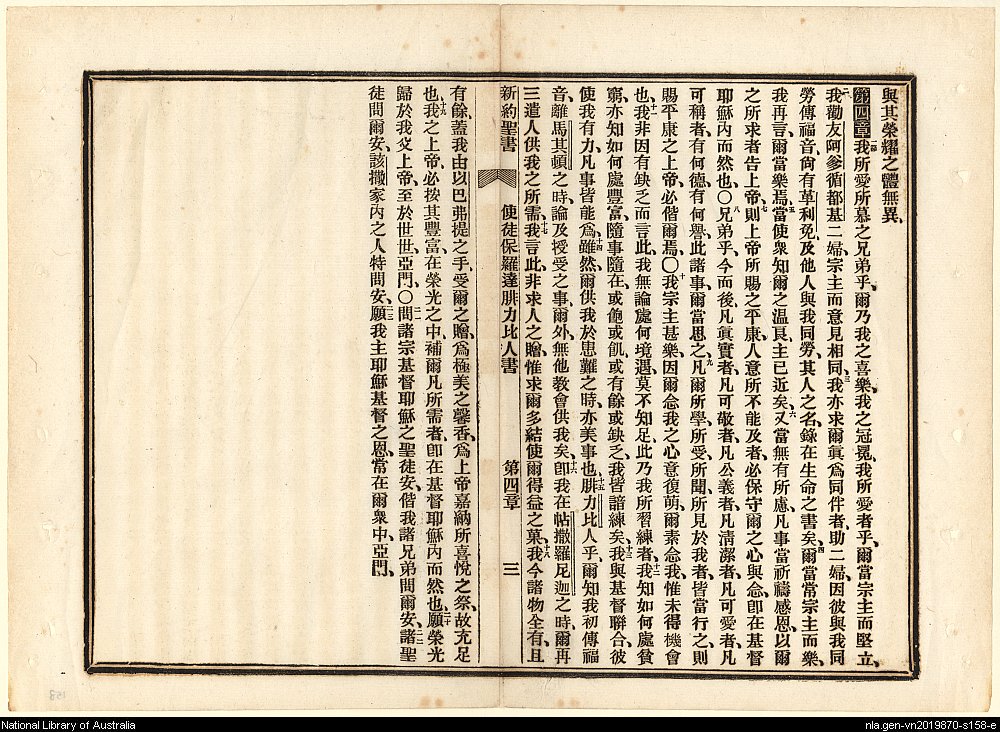 與其榮耀之體無異、
第四章一節我所愛所慕之兄弟乎、爾乃我之喜樂、我之冠冕、我所愛者乎、爾當宗主而堅立、
二我勸友阿爹循都基二婦、宗主而意見相同、三我亦求爾眞爲同伴者、助二婦、因彼與我同
勞傳福音、尙有革利免、及他人與我同勞、其人之名、錄在生命之書矣、四爾當常宗主而樂、
我再言、爾當樂焉、五當使衆知爾之温良、主已近矣、六又當無有所慮、凡事當祈禱感恩、以爾
之所求者告上帝、七則上帝所賜之平康、人意所不能及者、必保守爾之心與念、卽在基督
耶穌內而然也、〇八兄弟乎、今而後凡眞實者、凡可敬者、凡公義者、凡淸潔者、凡可愛者、凡
可稱者、有何德、有何譽、此諸事爾當思之、九凡爾所學、所受、所聞、所見於我者、皆當行之、則
賜平康之上帝、必偕爾焉、〇十我宗主甚樂、因爾念我之心意復萌、爾素念我、惟未得機會
也、十一我非因有缺乏而言此、我無論處何境遇、莫不知足、此乃我所習練者、十二我知如何處貧
窮、亦知如何處豐富、隨事隨在、或飽或飢、或有餘或缺乏、我皆諳練矣、十三我與基督聯合、彼
使我有力、凡事皆能爲、十四雖然爾供我於患難之時、亦美事也、十五腓力比人乎、爾知我初傳福
音、離馬其頓之時、論及授受之事、爾外無他教會供我矣、十六卽我在帖撒羅尼迦之時、爾再
三遣人供我之所需、十七我言此、非求人之贈、惟求爾多結使爾得益之菓、十八我今諸物全有、且
新約聖書 使徒保羅達腓力比人書 第四章 三
有餘、蓋我由以巴弗提之手、受爾之贈、爲極美之馨香、爲上帝嘉納所喜悅之祭、故充足
也、十九我之上帝、必按其豐富、在榮光之中、補爾凡所需者、卽在基督耶穌內而然也、二十願榮光
歸於我父上帝、至於世世、亞門、〇二一問諸宗基督耶穌之聖徒安、偕我諸兄弟問爾安、二二諸聖
徒問爾安、該撒家內之人特問安、二三願我主耶穌基督之恩、常在爾衆中、亞門、
National Library of Australia
nla.gen-vn2019870-s158-e